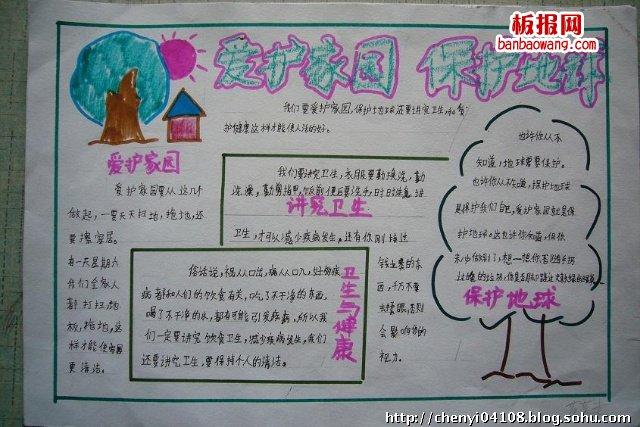 板报网
banbaowang.com
爱护家园 保护地球
我们要爱护家园,保护地球还要讲究卫生,和
护健康这样才能使人活的好。
爱护家园
爱护家园要从这几个
做起,一要天天扫地,拖地,还
要擦窗居。
有一天星期六
我们全家人
都打扫地
板,拖地,这
样才能使家园
更清洁。
我们要讲究卫生,衣服要勤换洗,勤
洗澡,勤剪指甲,饭前便后要洗手,时时注意
讲究卫生
卫生,才可以减少疾病发生。还有你刚
钱之票的东
西,千万不要
去揉眼,否则
会影响你的
视力。
俗话说,祸从口出,病从口入,妇物疾
病都和人们的饮食有关,吃了不干净的东西,
喝了不干净的水,都有可能引发疾病,所以我
们一定要讲究饮食卫生,减少疾病发生,我们
还要讲究卫生,要保持个人的清洁。
卫生与健康
也许你从不
知道,地球需要保护。
也许你从不知道,保护地球
是保护我们自己,爱护家园就是保
护地球。这也许你知道,但你
保护地球
http://chenyi04108.blog.sohu.com